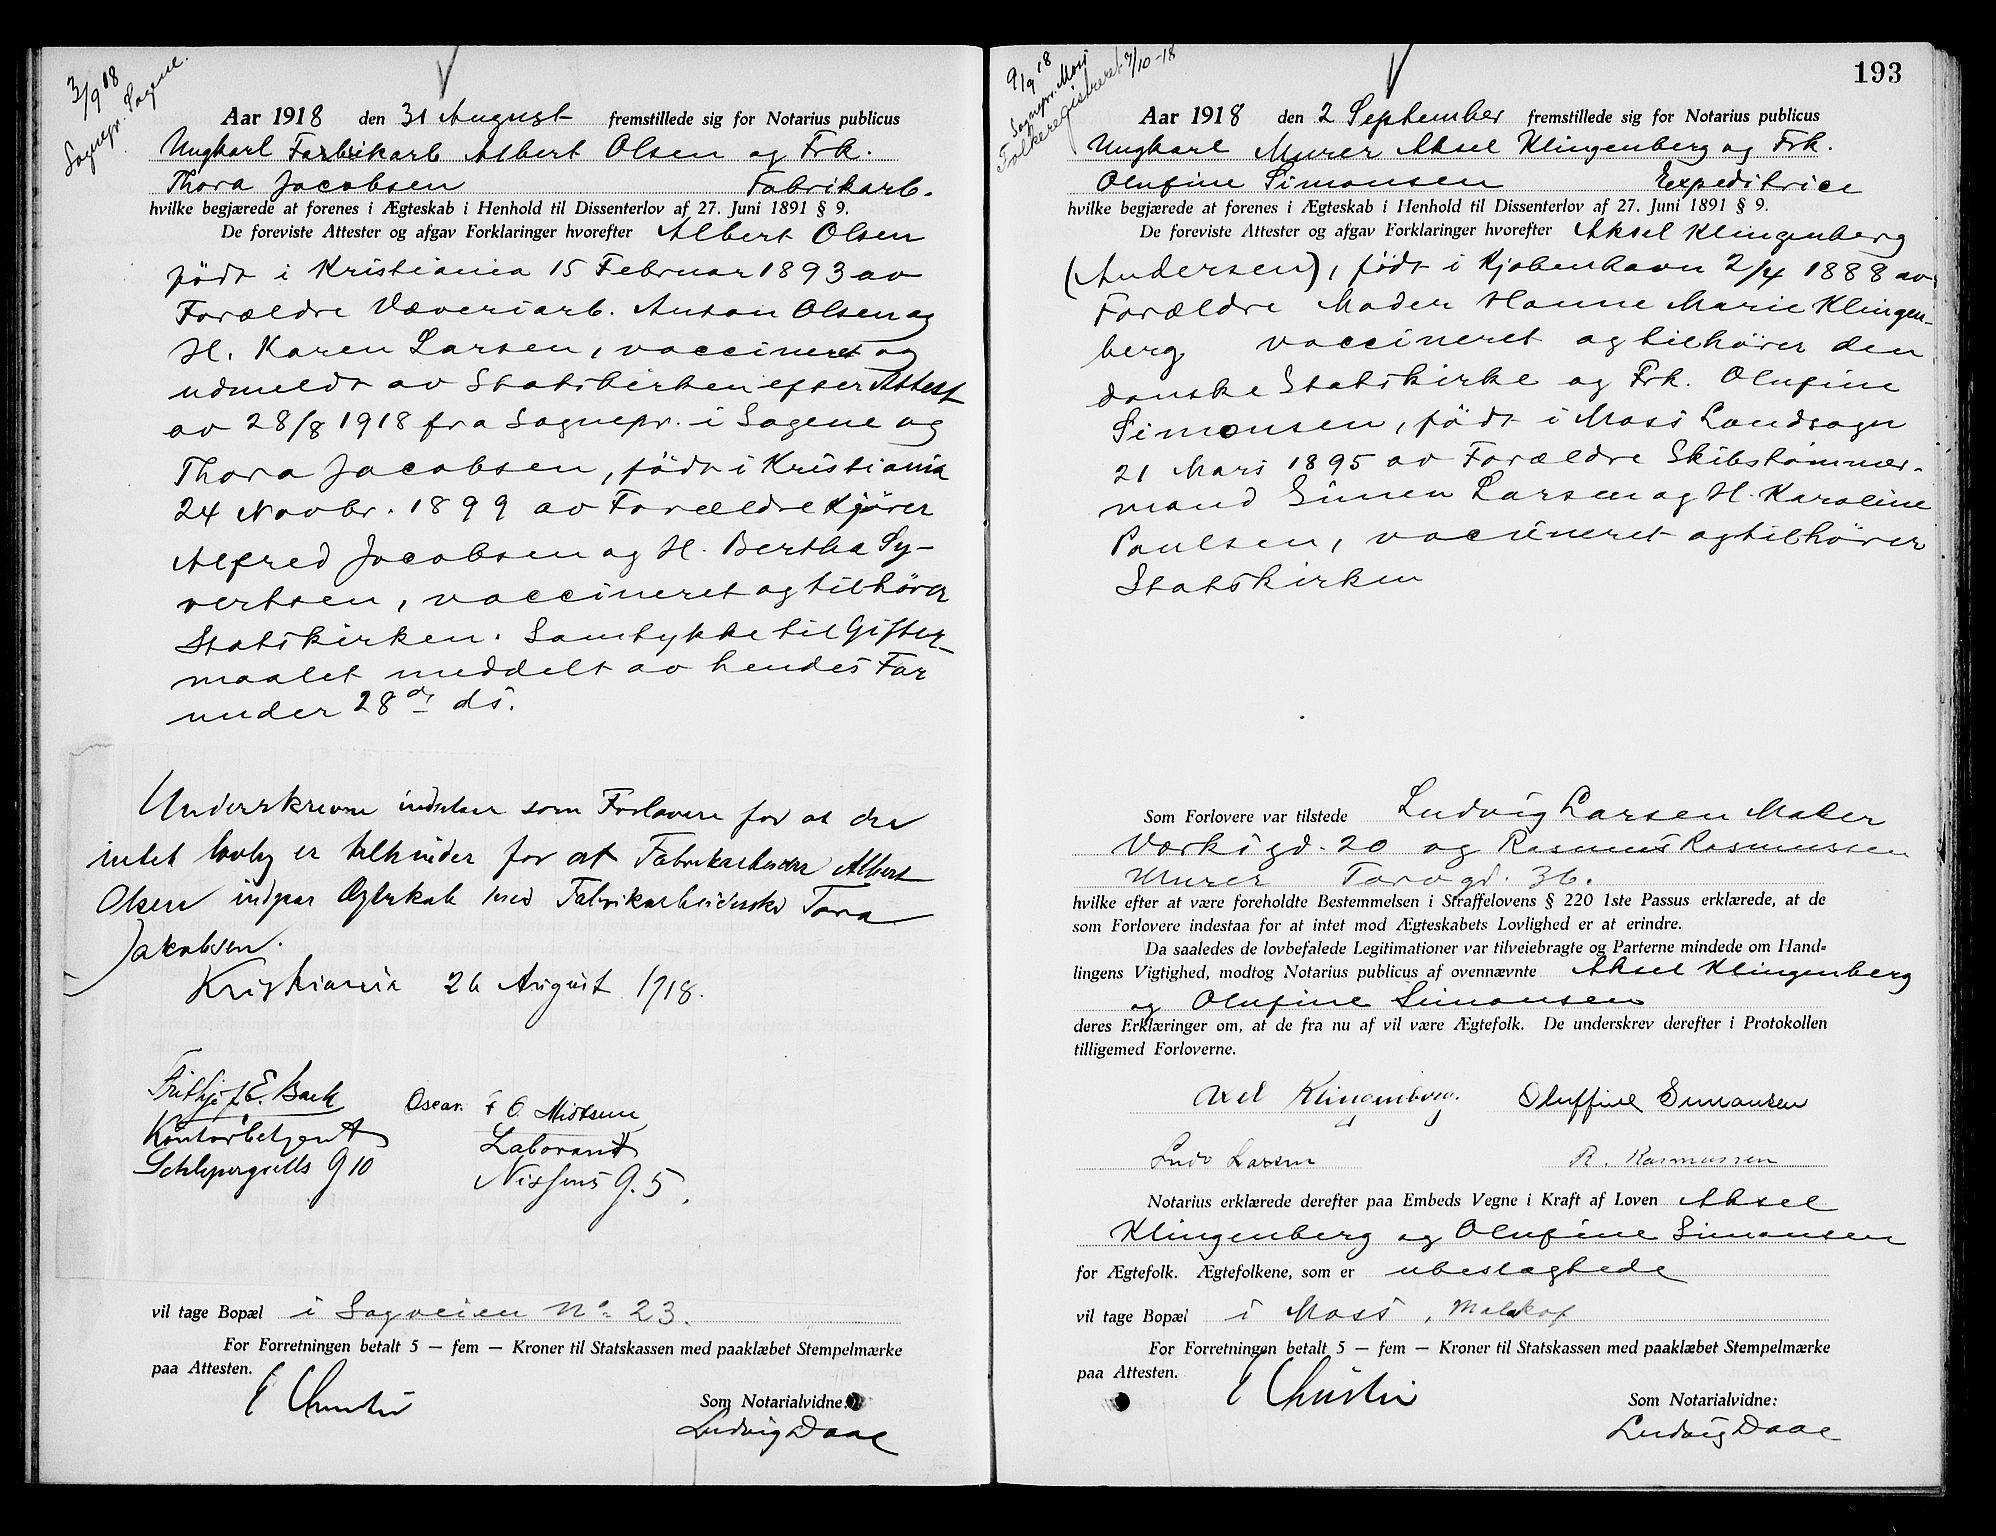 3/9 18
Sognepr. Sagene.
Aar 1918 den 31 August fremstillede sig for Notarius publicus
Ungkarl Fabrikarb Albert Olsen og Frk.
Thora Jacobsen Fabrikarb.
hvilke begjærede at forenes i Ægteskab i Henhold til Dissenterlov af 27. Juni 1891 § 9.
De foreviste Attester og afgav Forklaringer hvorefter Albert Olsen
födt i Kristiania 15 Februar 1893 av
Forældre Væveriarb. Anton Olsen og
H. Karen Larsen, vaccineret og
udmeldt av Statskirken efter Attest
av 28/8 1918 fra Sognepr. i Sagene og
Thora Jacobsen, födt i Kristiania
24 Novbr. 1899 av Forældre Kjörer
Alfred Jacobsen og H. Bertha Sy-
vertsen, vaccineret og tilhörer
Statskirken. Samtykke til Gifter-
maalet meddelt av hendes Far
under 28de ds.
Underskrevne indstaar som Forlovere for at der
intet lovlig er tilhinder for at Fabrikarbeider Albert
Olsen indgaar Ægteskab med Fabrikarbeiderske Tora
Jakobsen.
Kristiania 26 August 1918.
Frithjof E. Back Oscar F O Midtsune
Kontorbetjent Laborant
Schleppegrells G 10 Nissens G. 5.
vil tage Bopæl i Sagveien No 23.
For Forretningen betalt 5 — fem — Kroner til Statskassen med paaklæbet Stempelmærke
paa Attesten.
E Christie
Som Notarialvidne:
Ludvig Daae
9/9 18
Sognepr. Moss
Folkeregistreret 7/10-18
193
Aar 1918 den 2 September fremstillede sig for Notarius publicus
Ungkarl Murer Aksel Klingenberg og Frk.
Olufine Simonsen Expeditrice
hvilke begjærede at forenes i Ægteskab i Henhold til Dissenterlov af 27. Juni 1891 § 9.
De foreviste Attester og afgav Forklaringer hvorefter Aksel Klingenberg
(Andersen), födt i Kjøbenhavn 2/4 1888 av
Forældre Moder Hanne Marie Klingen-
berg vaccineret og tilhörer den
danske Statskirke og Frk. Olufine
Simonsen, födt i Moss Landsogn
21 Mars 1895 av Forældre Skibstømmer-
mand Simen Larsen og H. Karoline
Paulsen, vaccineret og tilhörer
Statskirken
Som Forlovere var tilstede Ludvig Larsen Maler
Værksgd. 20 og Rasmus Rasmussen
Murer Torvgd. 36.
hvilke efter at være foreholdte Bestemmelsen i Straffelovens § 220 1ste Passus erklærede, at de
som Forlovere indestaa for at intet mod Ægteskabets Lovlighed er at erindre.
Da saaledes de lovbefalede Legitimationer var tilveiebragte og Parterne mindede om Hand-
lingens Vigtighed, modtog Notarius publicus af ovennævnte Aksel Klingenberg
og Olufine Simonsen
deres Erklæringer om, at de fra nu af vil være Ægtefolk. De underskrev derefter i Protokollen
tilligemed Forloverne.
Axel Klingenberg. Oluffine Simonsen
Ludv Larsen R. Rasmussen
Notarius erklærede derefter paa Embeds Vegne i Kraft af Loven Aksel
Klingenberg og Olufine Simonsen
for Ægtefolk. Ægtefolkene, som er ubeslægtede
vil tage Bopæl i Moss, Malakof
For Forretningen betalt 5 — fem — Kroner til Statskassen med paaklæbet Stempelmærke
paa Attesten.
E Christie
Som Notarialvidne:
Ludvig Daae